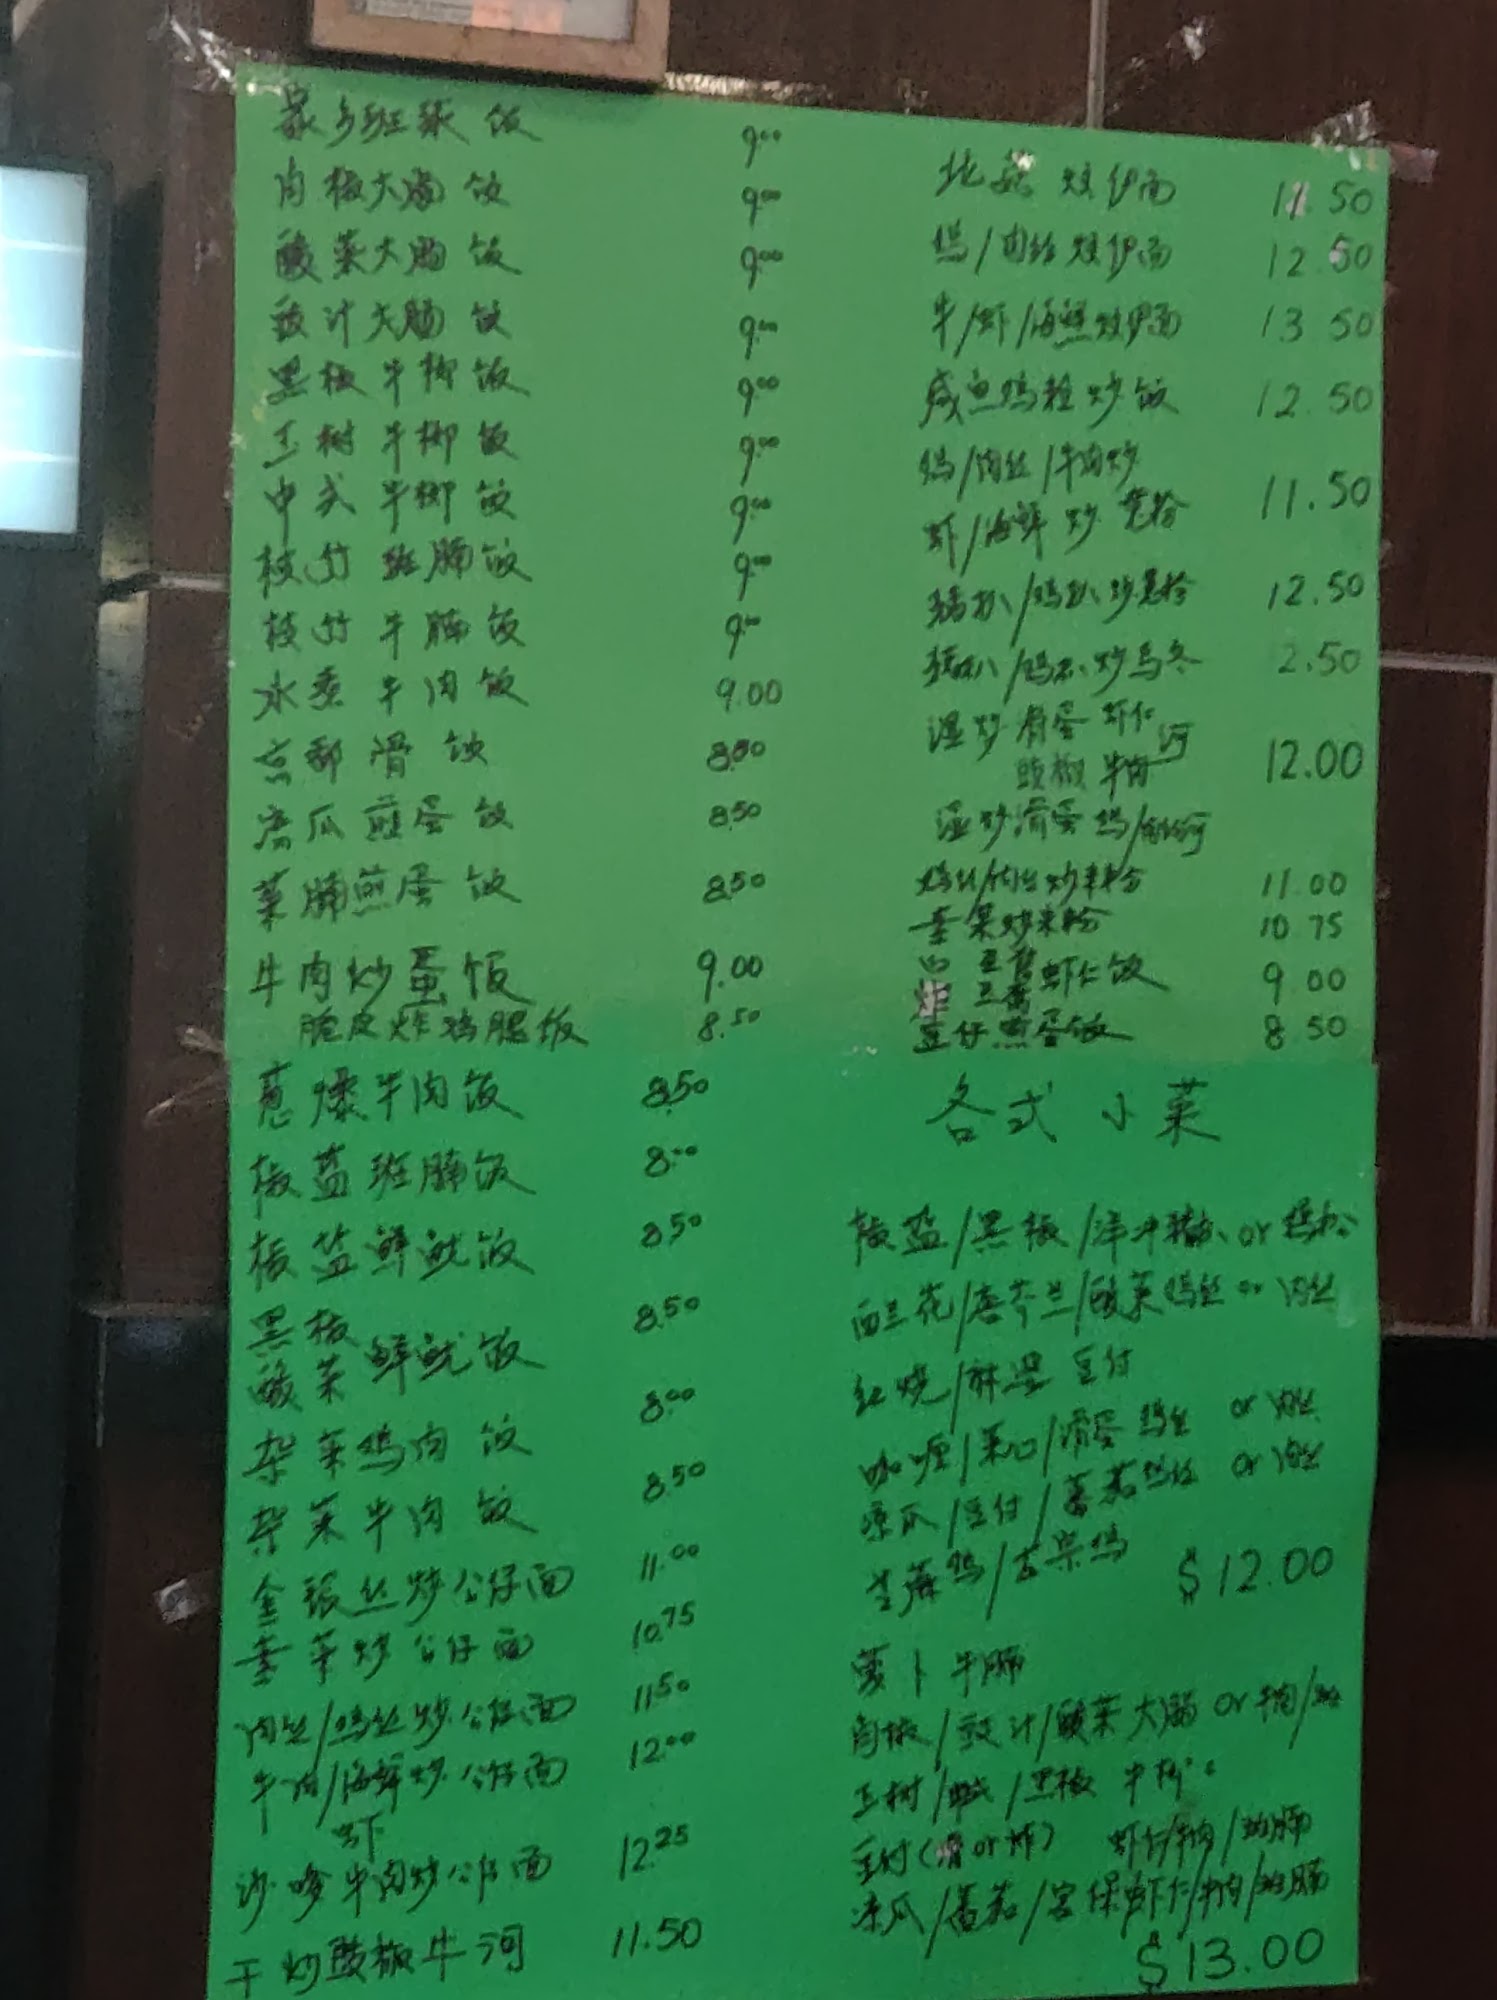 粟夕班球饭 9.00
肉椒大肠饭 9.00
酸菜大肠饭 9.00
豉汁大肠饭 9.00
黑椒牛柳饭 9.00
玉树牛柳饭 9.00
中式牛柳饭 9.00
枝竹班腩饭 9.00
枝竹牛腩饭 9.00
水煮牛肉饭 9.00
京都骨饭 8.50
凉瓜煎蛋饭 8.50
菜脯煎蛋饭 8.50
牛肉炒蛋饭 9.00
脆皮炸鸡腿饭 8.50
葱爆牛肉饭 8.50
椒盐班腩饭 8.00
椒盐鲜鱿饭 8.50
黑椒
酸菜鲜鱿饭 8.50
杂菜鸡肉饭 8.00
杂菜牛肉饭 8.50
金银丝炒公仔面 11.00
素菜炒公仔面 10.75
肉丝/鸡丝炒公仔面 11.50
牛肉/海鲜炒公仔面 12.00
虾
沙嗲牛肉炒公仔面 12.25
干炒豉椒牛河 11.50
北菇炆伊面 11.50
鸡/肉丝炆伊面 12.50
牛/虾/海鲜炆伊面 13.50
咸鱼鸡粒炒饭 12.50
鸡/肉丝/牛肉炒
虾/海鲜炒 11.50
猪扒/鸡扒炒 12.50
猪扒/鸡扒炒乌冬 2.50
湿炒滑蛋虾仁河
豉椒牛肉 12.00
湿炒滑蛋鸡/肉丝河
鸡丝/肉丝炒米粉 11.00
素菜炒米粉 10.75
豆腐虾仁饭 9.00
炸
豆仔煎蛋饭 8.50
各式小菜
椒盐/黑椒/洋葱猪扒 or 鸡扒
西兰花/唐芥兰/酸菜鸡丝 or 肉丝
红烧/麻婆豆付
咖喱/菜心/滑蛋鸡丝 or 肉丝
凉瓜/豆付/蕃茄鸡丝 or 肉丝
/左宗鸡 $12.00
萝卜牛腩
肉椒/豉汁/酸菜大肠 or 牛肉/班
玉树/中式/黑椒牛柳
豆付(滑 or 炸) 虾仁/牛肉/班腩
凉瓜/蕃茄/宫保虾仁/牛肉/班腩
$13.00